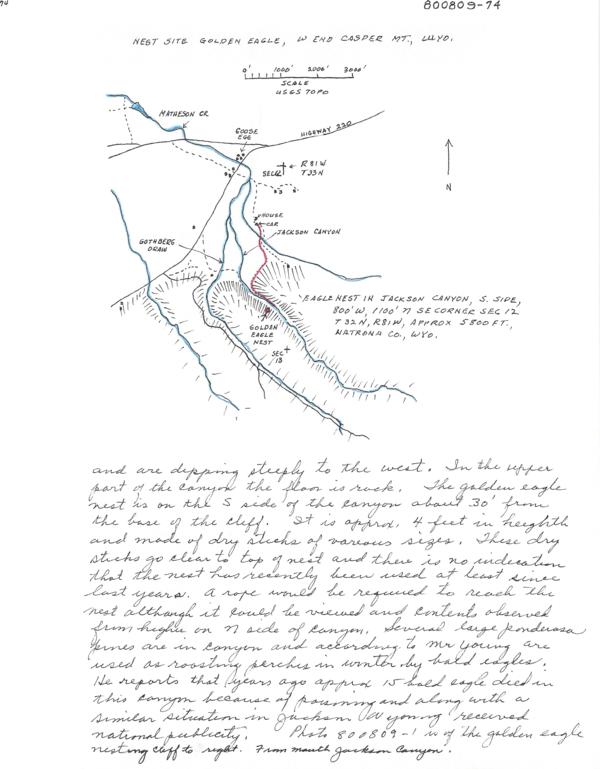 800809-74
NEST SITE GOLDEN EAGLE, W END CASPER MT., WYO.
0' 1000' 2000' 3000'
SCALE
USGS TOPO
MATHESON CR.
HIGHWAY 220
GOOSE
EGG
SEC 12
R81W
T33N
N
HOUSE
CAR
JACKSON CANYON
GOTHBERG
DRAW
EAGLE NEST IN JACKSON CANYON, S. SIDE,
800' W, 1100' N SE CORNER SEC 12
T32N, R81W, APPROX 5800 FT.,
NATRONA CO., WYO.
GOLDEN
EAGLE
NEST
SEC
13
and are dipping steeply to the west. In the upper
part of the canyon the floor is rock. The golden eagle
nest is on the S side of the canyon about 30' from
the base of the cliff. It is approx. 4 feet in heighth
and made of dry sticks of various sizes. These dry
sticks go clear to top of nest and there is no indication
that the nest has recently been used at least since
last years. A rope would be required to reach the
nest although it could be viewed and contents observed
from higher on N side of canyon. Several large ponderosa
pines are in canyon and according to Mr Young are
used as roosting perches in winter by bald eagles.
He reports that years ago approx 15 bald eagle died in
this canyon because of poisoning and along with a
similar situation in Jackson Wyoming received
national publicity. Photo 800809-1 is of the golden eagle
nesting cliff to right. From mouth Jackson Canyon.